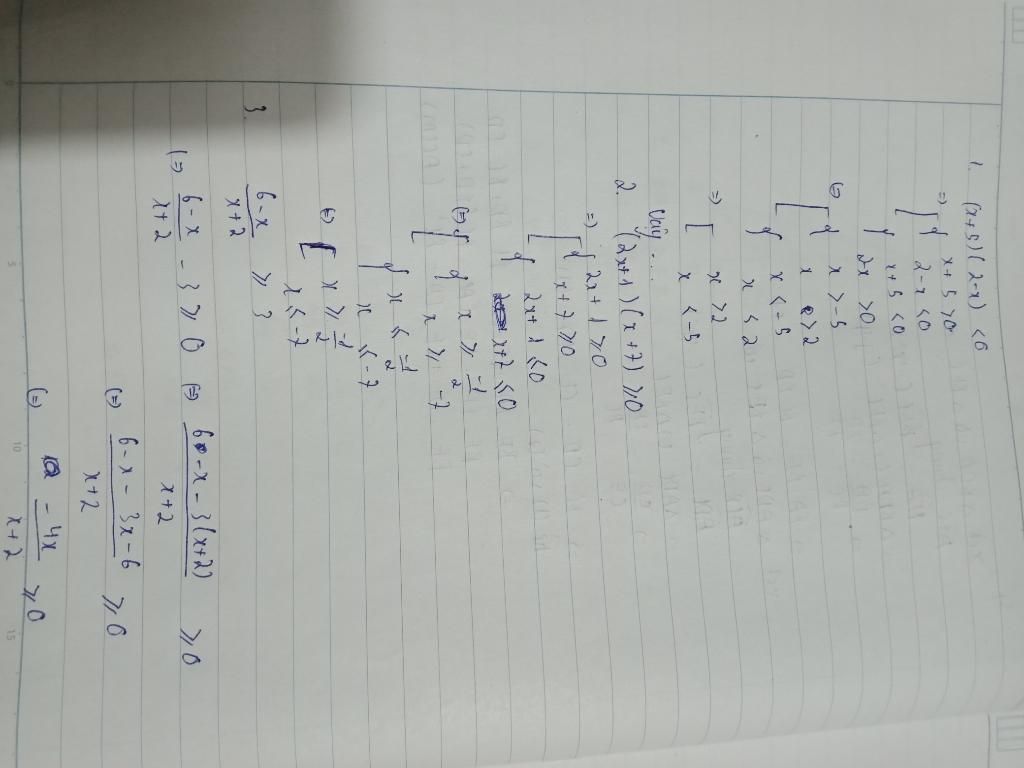 1. (x+5)(2-x) < 0
=> [ { x+5 > 0
2-x < 0
{ x+5 < 0
2x > 0
(=) [ { x > -5
x > 2
{ x < -5
x < 2
=> [ x > 2
x < -5
Vậy ...
2. (2x+1)(x+7) ≥ 0
=> [ { 2x+1 ≥ 0
x+7 ≥ 0
{ 2x+1 ≤ 0
x+7 ≤ 0
(=) [ { x ≥ -1/2
x ≥ -7
{ x ≤ -1/2
x ≤ -7
(=) [ x ≥ -1/2
x ≤ -7
3. (6-x)/(x+2) ≥ 3
(=) (6-x)/(x+2) - 3 ≥ 0 (=) (6-x-3(x+2))/(x+2) ≥ 0
(=) (6-x-3x-6)/(x+2) ≥ 0
(=) (-4x)/(x+2) ≥ 0